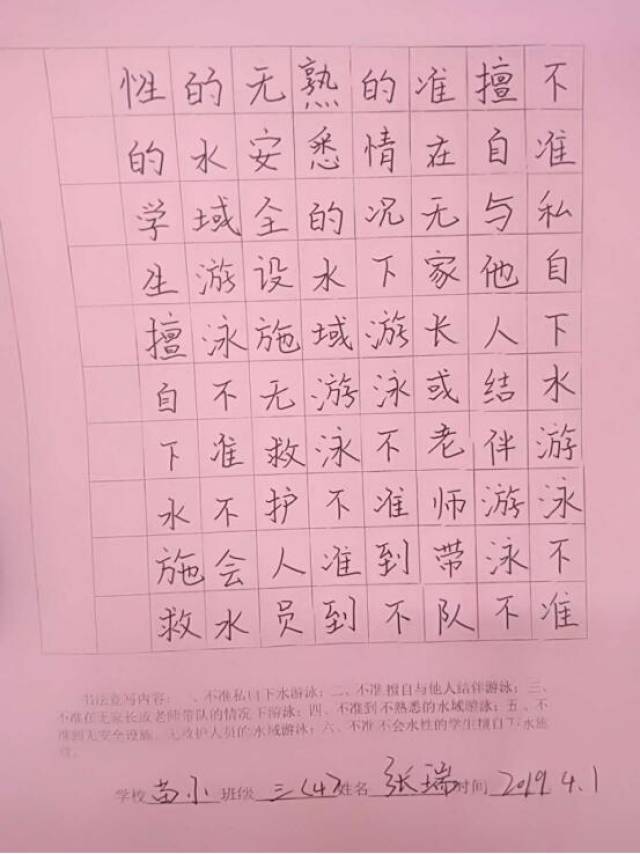 不准私自下水游泳不准
擅自与他人结伴游泳不
准在无家长或老师带队
的情况下游泳不准到不
熟悉的水域游泳不准到
无安全设施无救护人员
的水域游泳不准不会水
性的学生擅自下水施救
书法竞写内容：一、不准私自下水游泳；二、不准擅自与他人结伴游泳；三、
不准在无家长或老师带队的情况下游泳；四、不准到不熟悉的水域游泳；五、不
准到无安全设施、无救护人员的水域游泳；六、不准不会水性的学生擅自下水施
救。
学校 苗小 班级 三(4) 姓名 张瑞 时间 2019.4.1